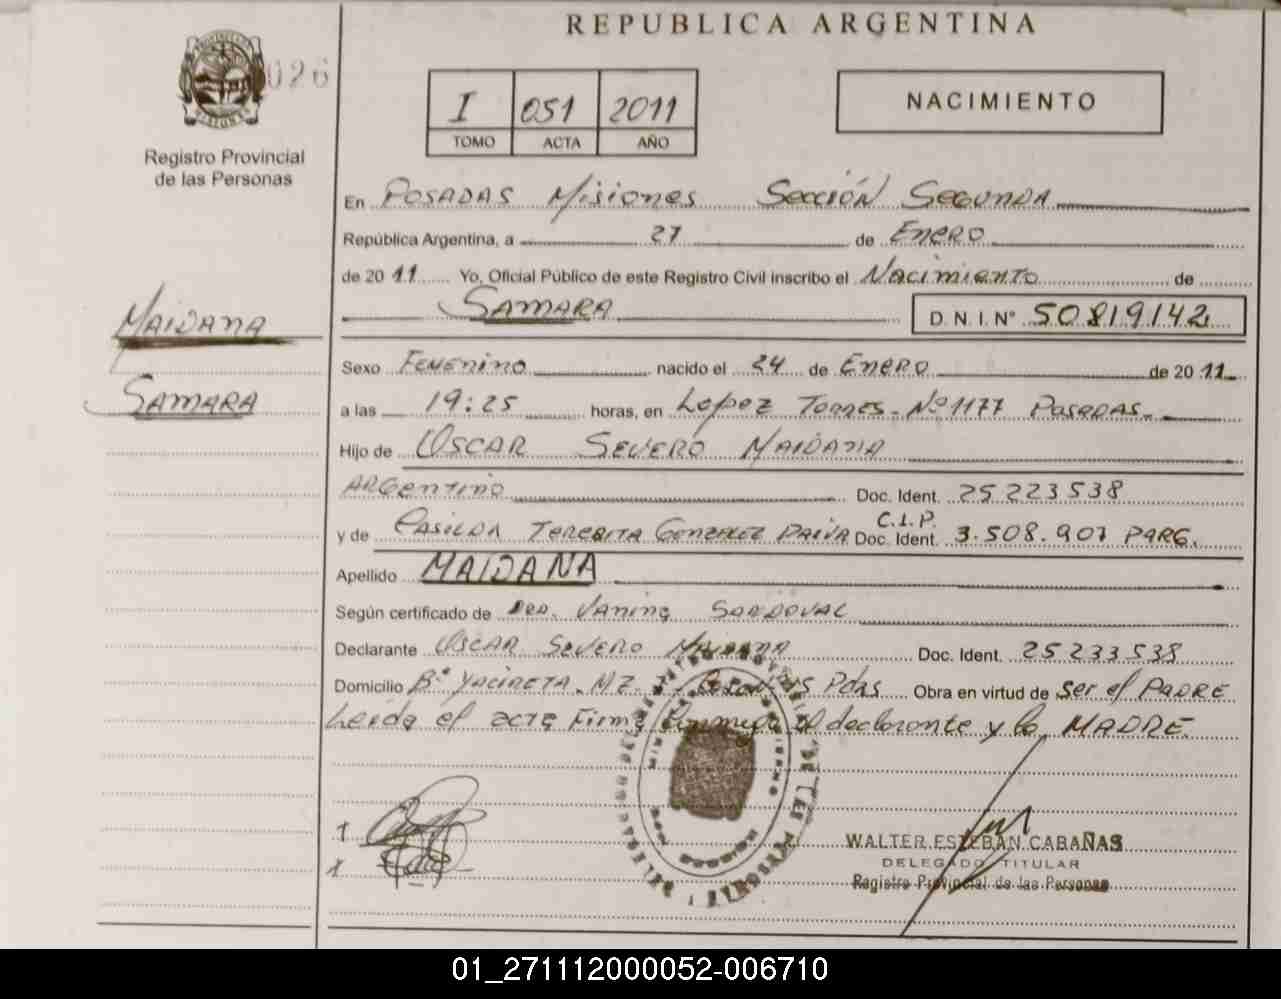 REPUBLICA ARGENTINA
026
Registro Provincial
de las Personas
I 051 2011
TOMO ACTA AÑO
NACIMIENTO
En POSADAS Misiones Sección Segunda
República Argentina, a 27 de Enero
de 2011 Yo, Oficial Público de este Registro Civil inscribo el Nacimiento de
SAMARA D.N.I. N° 50819142
MAIDANA
SAMARA
Sexo Femenino nacido el 24 de Enero de 2011
a las 19:25 horas, en Lopez Torres - Nº 1177 Posadas.-
Hijo de OSCAR SEVERO MAIDANA
ARGENTINO Doc. Ident. 25 223 538
y de CASILDA TERESITA GONZALEZ PAIVA C.I.P. Doc. Ident. 3.508.907 PARG.
Apellido MAIDANA
Según certificado de DRA. Vanina SANDOVAL
Declarante OSCAR SEVERO MAIDANA Doc. Ident. 25 233 538
Domicilio Bº YACIRETA. MZ. Pdas Obra en virtud de ser el PADRE
Leída el acta Firma conmigo el declarante y la MADRE.
WALTER ESTEBAN CABAÑAS
DELEGADO TITULAR
Registro Provincial de las Personas
01_271112000052-006710